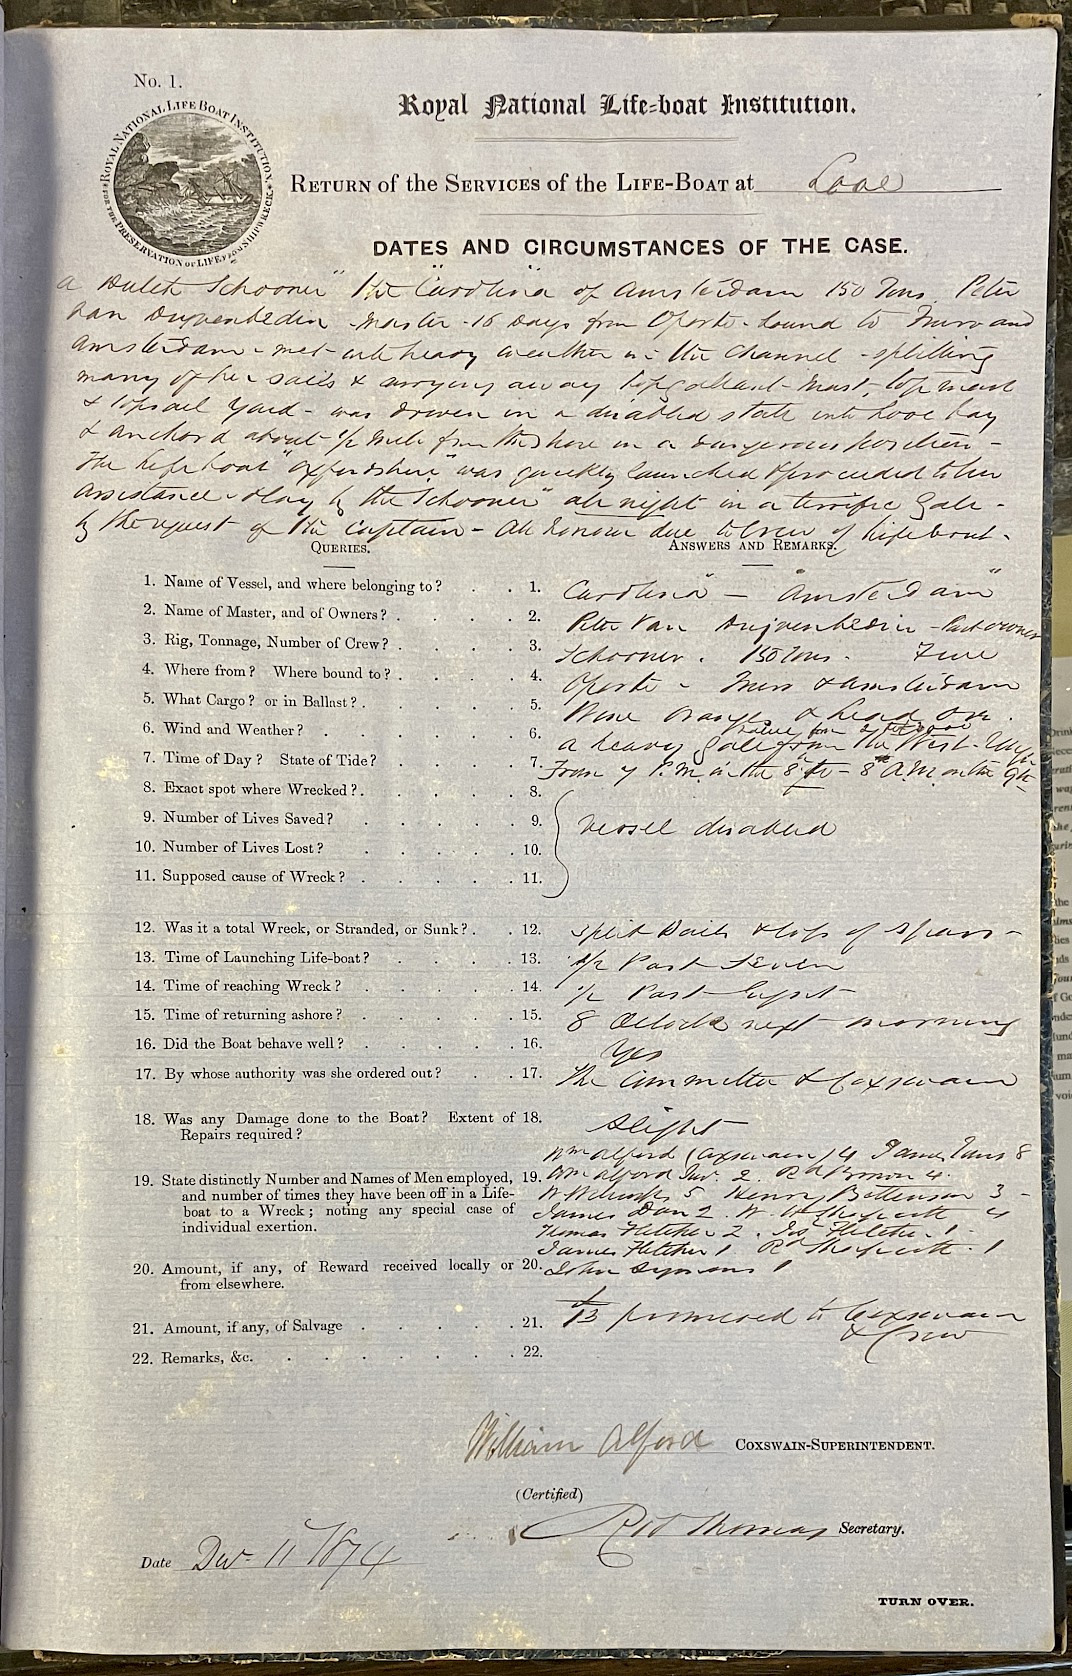 No. 1.
ROYAL NATIONAL LIFE BOAT INSTITUTION. FOR THE PRESERVATION OF LIFE FROM SHIPWRECK.
Royal National Life-boat Institution.
RETURN of the SERVICES of the LIFE-BOAT at Looe
DATES AND CIRCUMSTANCES OF THE CASE.
a Dutch Schooner "The "Carolina" of Amsterdam 150 Tons. Peter
Van Master - 16 Days from Oporto - bound to and
Amsterdam - met with heavy weather in the Channel - splitting
many of her sails & carrying away topgallant mast, top mast
& topsail yard - was driven in a disabled state into Looe bay
& anchord about 1/2 mile from the shore in a dangerous position -
The Life boat "Oxfordshire" was quickly launched & proceeded to her
assistance & lay by the Schooner all night in a terrific Gale -
by the request of the Captain - All honour due to Crew of Life boat -
QUERIES. ANSWERS AND REMARKS.
1. Name of Vessel, and where belonging to? 1. Carolina" - "Amsterdam"
2. Name of Master, and of Owners? 2. Peter Van - Part owner
3. Rig, Tonnage, Number of Crew? 3. Schooner. 150 Tons. Five
4. Where from? Where bound to? 4. Oporto - & Amsterdam
5. What Cargo? or in Ballast? 5. Wine Oranges & Lead Ore.
6. Wind and Weather? 6. a heavy Gale from the West
7. Time of Day? State of Tide? 7. From 7 P.M. on the 8th to 8 A.M. on the 9th
8. Exact spot where Wrecked? 8.
9. Number of Lives Saved? 9. vessel disabled
10. Number of Lives Lost? 10.
11. Supposed cause of Wreck? 11.
12. Was it a total Wreck, or Stranded, or Sunk? 12. Split Sails & loss of Spars -
13. Time of Launching Life-boat? 13. 1/2 Past Seven
14. Time of reaching Wreck? 14. 1/2 Past Eight
15. Time of returning ashore? 15. 8 Oclock next morning
16. Did the Boat behave well? 16. Yes
17. By whose authority was she ordered out? 17. The Committee & Coxswain
18. Was any Damage done to the Boat? Extent of 18. Slight
Repairs required?
Wm Alford (Coxswain) 14 James 8
19. State distinctly Number and Names of Men employed, 19. Wm Alford Junr. 2. Rd Brown 4.
and number of times they have been off in a Life- W 5 Henry Bettenson 3 -
boat to a Wreck; noting any special case of James Dan 2 W. 4
individual exertion. Thomas Fletcher 2. Jos Fletcher 1 -
James Fletcher 1 Rd 1
20. Amount, if any, of Reward received locally or 20. John Symons 1
from elsewhere.
21. Amount, if any, of Salvage 21. £13 promised to Coxswain
& Crew
22. Remarks, &c. 22.
William Alford COXSWAIN-SUPERINTENDENT.
(Certified)
Rd Thomas Secretary.
Date Dec 11 1874
TURN OVER.